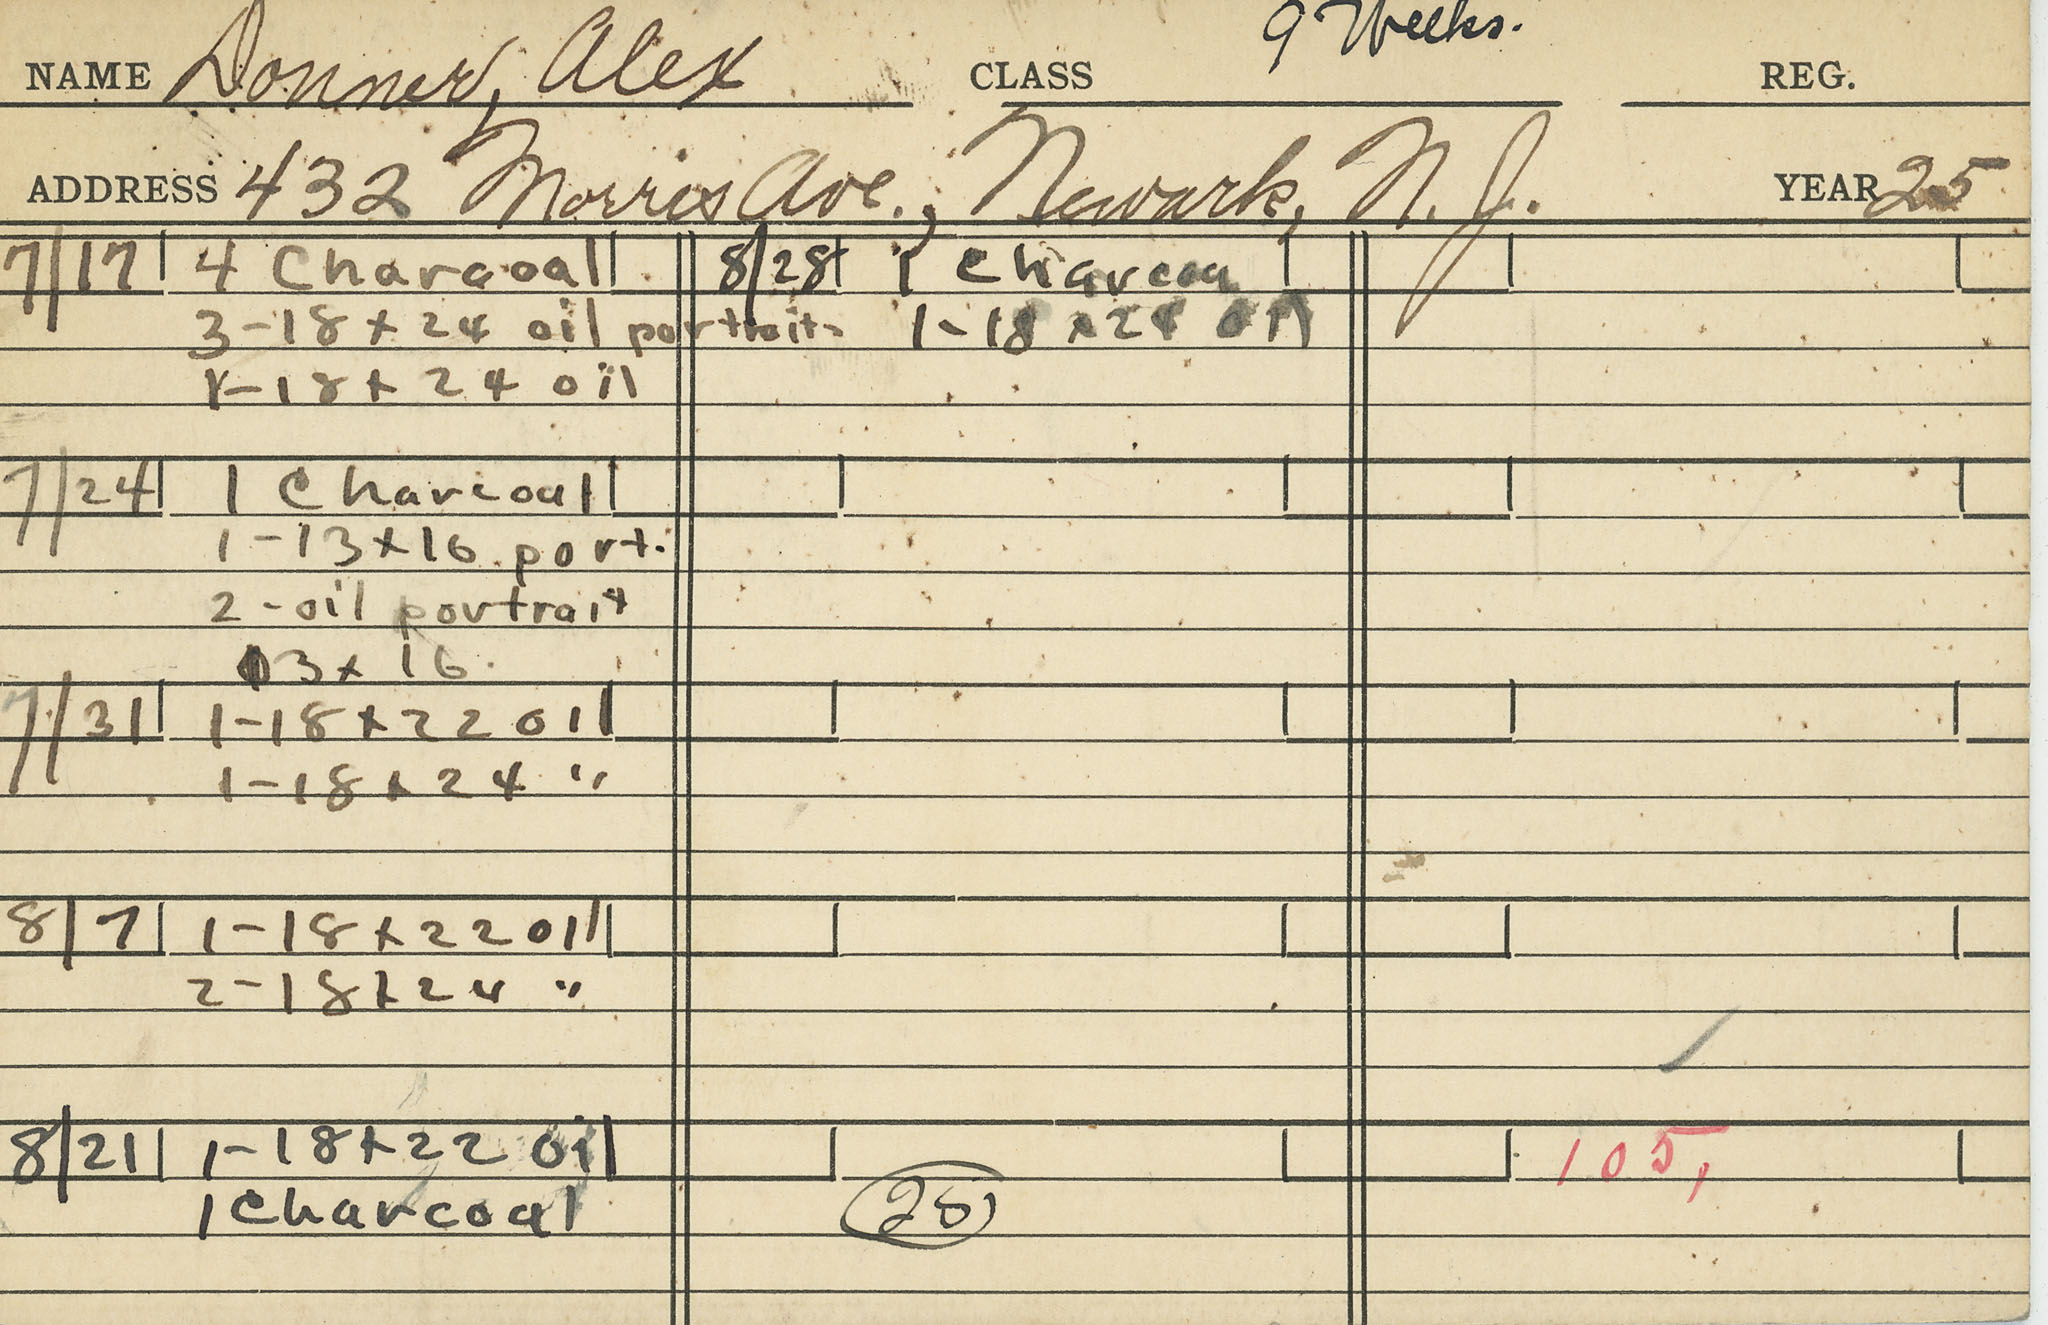 9 Weeks.
NAME Donner, Alex CLASS REG.
ADDRESS 432 Morris Ave., Newark, N.J. YEAR 25
7/17 4 Charcoal
3-18x24 oil portrait
1-18x24 oil
7/24 1 Charcoal
1-13x16 port.
2-oil portrait
13x16
7/31 1-18x22 oil
1-18x24 "
8/7 1-18x22 oil
2-18x24 "
8/21 1-18x22 oil
1 charcoal
8/28 1 Charcoa
1-18x24 oil
28
105,